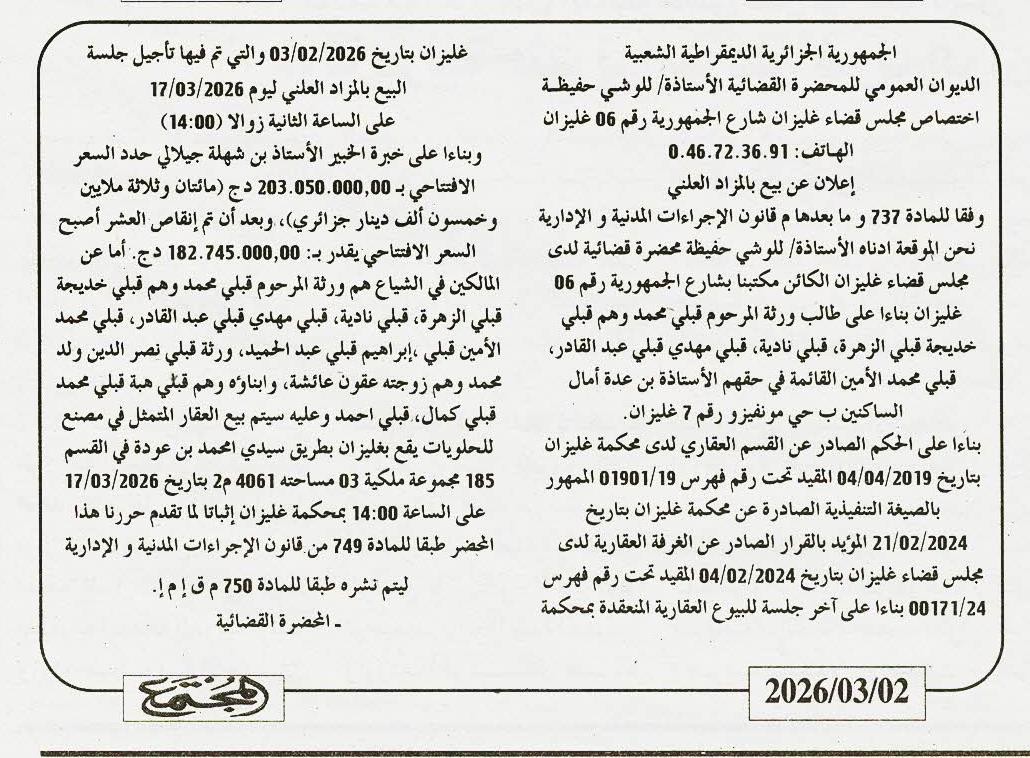 الجمهورية الجزائرية الديمقراطية الشعبية
الديوان العمومي للمحضرة القضائية الأستاذة/ للوشي حفيظة
اختصاص مجلس قضاء غليزان شارع الجمهورية رقم 06 غليزان
الهاتف: 0.46.72.36.91
إعلان عن بيع بالمزاد العلني
وفقا للمادة 737 و ما بعدها م قانون الإجراءات المدنية و الإدارية
نحن الموقعة ادناه الأستاذة/ للوشي حفيظة محضرة قضائية لدى
مجلس قضاء غليزان الكائن مكتبنا بشارع الجمهورية رقم 06
غليزان بناءا على طالب ورثة المرحوم قبلي محمد وهم قبلي
خديجة قبلي الزهرة، قبلي نادية، قبلي مهدي قبلي عبد القادر،
قبلي محمد الأمين القائمة في حقهم الأستاذة بن عدة أمال
الساكنين ب حي مونفيزو رقم 7 غليزان.
بناءا على الحكم الصادر عن القسم العقاري لدى محكمة غليزان
بتاريخ 04/04/2019 المقيد تحت رقم فهرس 01901/19 الممهور
بالصيغة التنفيذية الصادرة عن محكمة غليزان بتاريخ
21/02/2024 المؤيد بالقرار الصادر عن الغرفة العقارية لدى
مجلس قضاء غليزان بتاريخ 04/02/2024 المقيد تحت رقم فهرس
00171/24 بناءا على آخر جلسة للبيوع العقارية المنعقدة بمحكمة
غليزان بتاريخ 03/02/2026 والتي تم فيها تأجيل جلسة
البيع بالمزاد العلني ليوم 17/03/2026
على الساعة الثانية زوالا (14:00)
وبناءا على خبرة الخبير الأستاذ بن شهلة جيلالي حدد السعر
الافتتاحي بـ 203.050.000,00 دج (مائتان وثلاثة ملايين
وخمسون ألف دينار جزائري)، وبعد أن تم إنقاص العشر أصبح
السعر الافتتاحي يقدر بـ: 182.745.000,00 دج. أما عن
المالكين في الشياع هم ورثة المرحوم قبلي محمد وهم قبلي خديجة
قبلي الزهرة، قبلي نادية، قبلي مهدي قبلي عبد القادر، قبلي محمد
الأمين قبلي ،إبراهيم قبلي عبد الحميد، ورثة قبلي نصر الدين ولد
محمد وهم زوجته عقون عائشة، وابناؤه وهم قبلي هبة قبلي محمد
قبلي كمال، قبلي احمد وعليه سيتم بيع العقار المتمثل في مصنع
للحلويات يقع بغليزان بطريق سيدي امحمد بن عودة في القسم
185 مجموعة ملكية 03 مساحته 4061 م2 بتاريخ 17/03/2026
على الساعة 14:00 بمحكمة غليزان إثباتا لما تقدم حررنا هذا
المحضر طبقا للمادة 749 من قانون الإجراءات المدنية و الإدارية
ليتم نشره طبقا للمادة 750 م ق إ م إ.
ـ المحضرة القضائية
2026/03/02
المجتمع